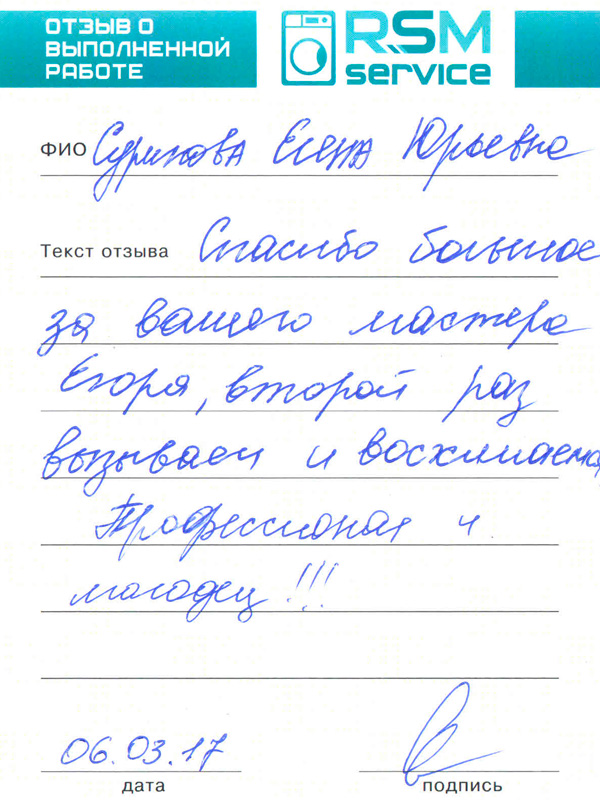 ОТЗЫВ О
ВЫПОЛНЕННОЙ
РАБОТЕ
RSM
service
ФИО Сурикова Елена Юрьевна
Текст отзыва Спасибо большое
за вашего мастера
Егоря, второй раз
вызываем и восхищаемся
Профессионал и
молодец!!!
06.03.17
дата
подпись